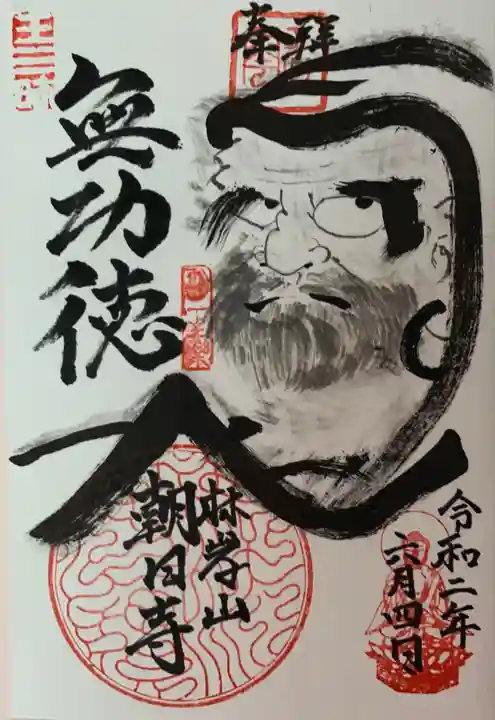 奉拝
無功徳
林学山
朝日寺
令和二年
六月四日